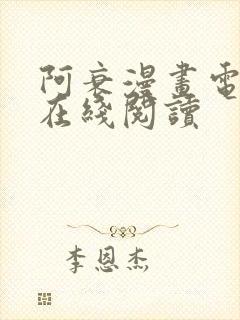 阿衰漫畫電
在綫閱讀
李恩杰